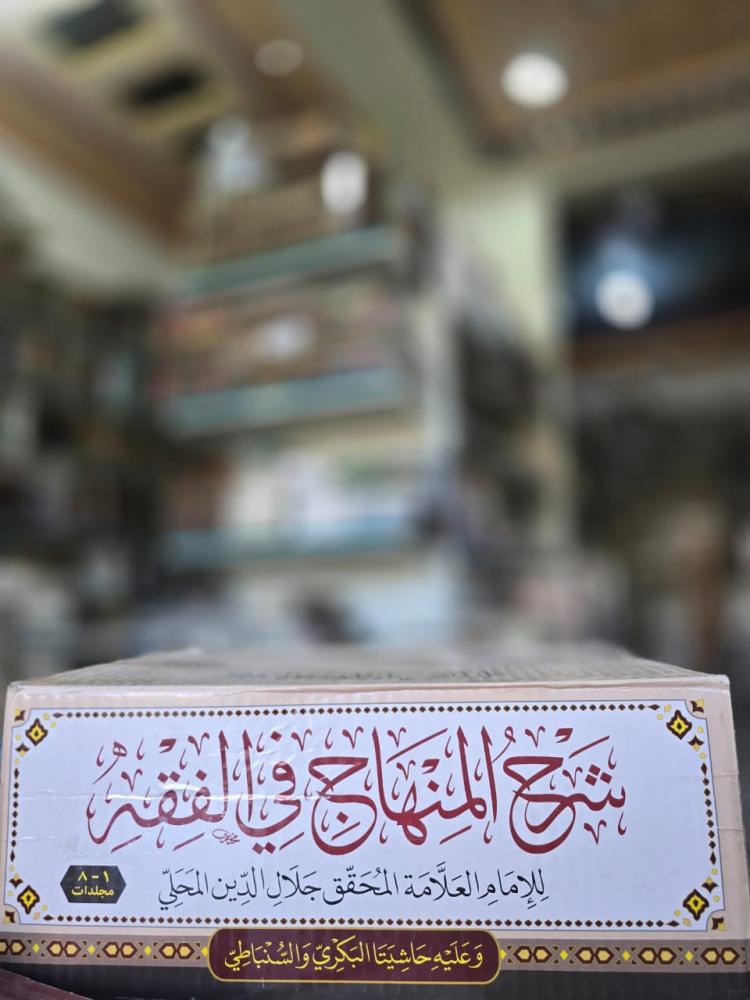 شَرْحُ المِنْهَاجِ فِي الفِقْهِ
لِلإِمَامِ العَلَّامَة المُحَقِّق جَلَالِ الدِّين المَحَلِّيّ
١-٨
مجلدات
وَعَلَيْهِ حَاشِيَتَا البَكْرِيّ وَالسُّنْبَاطِيّ